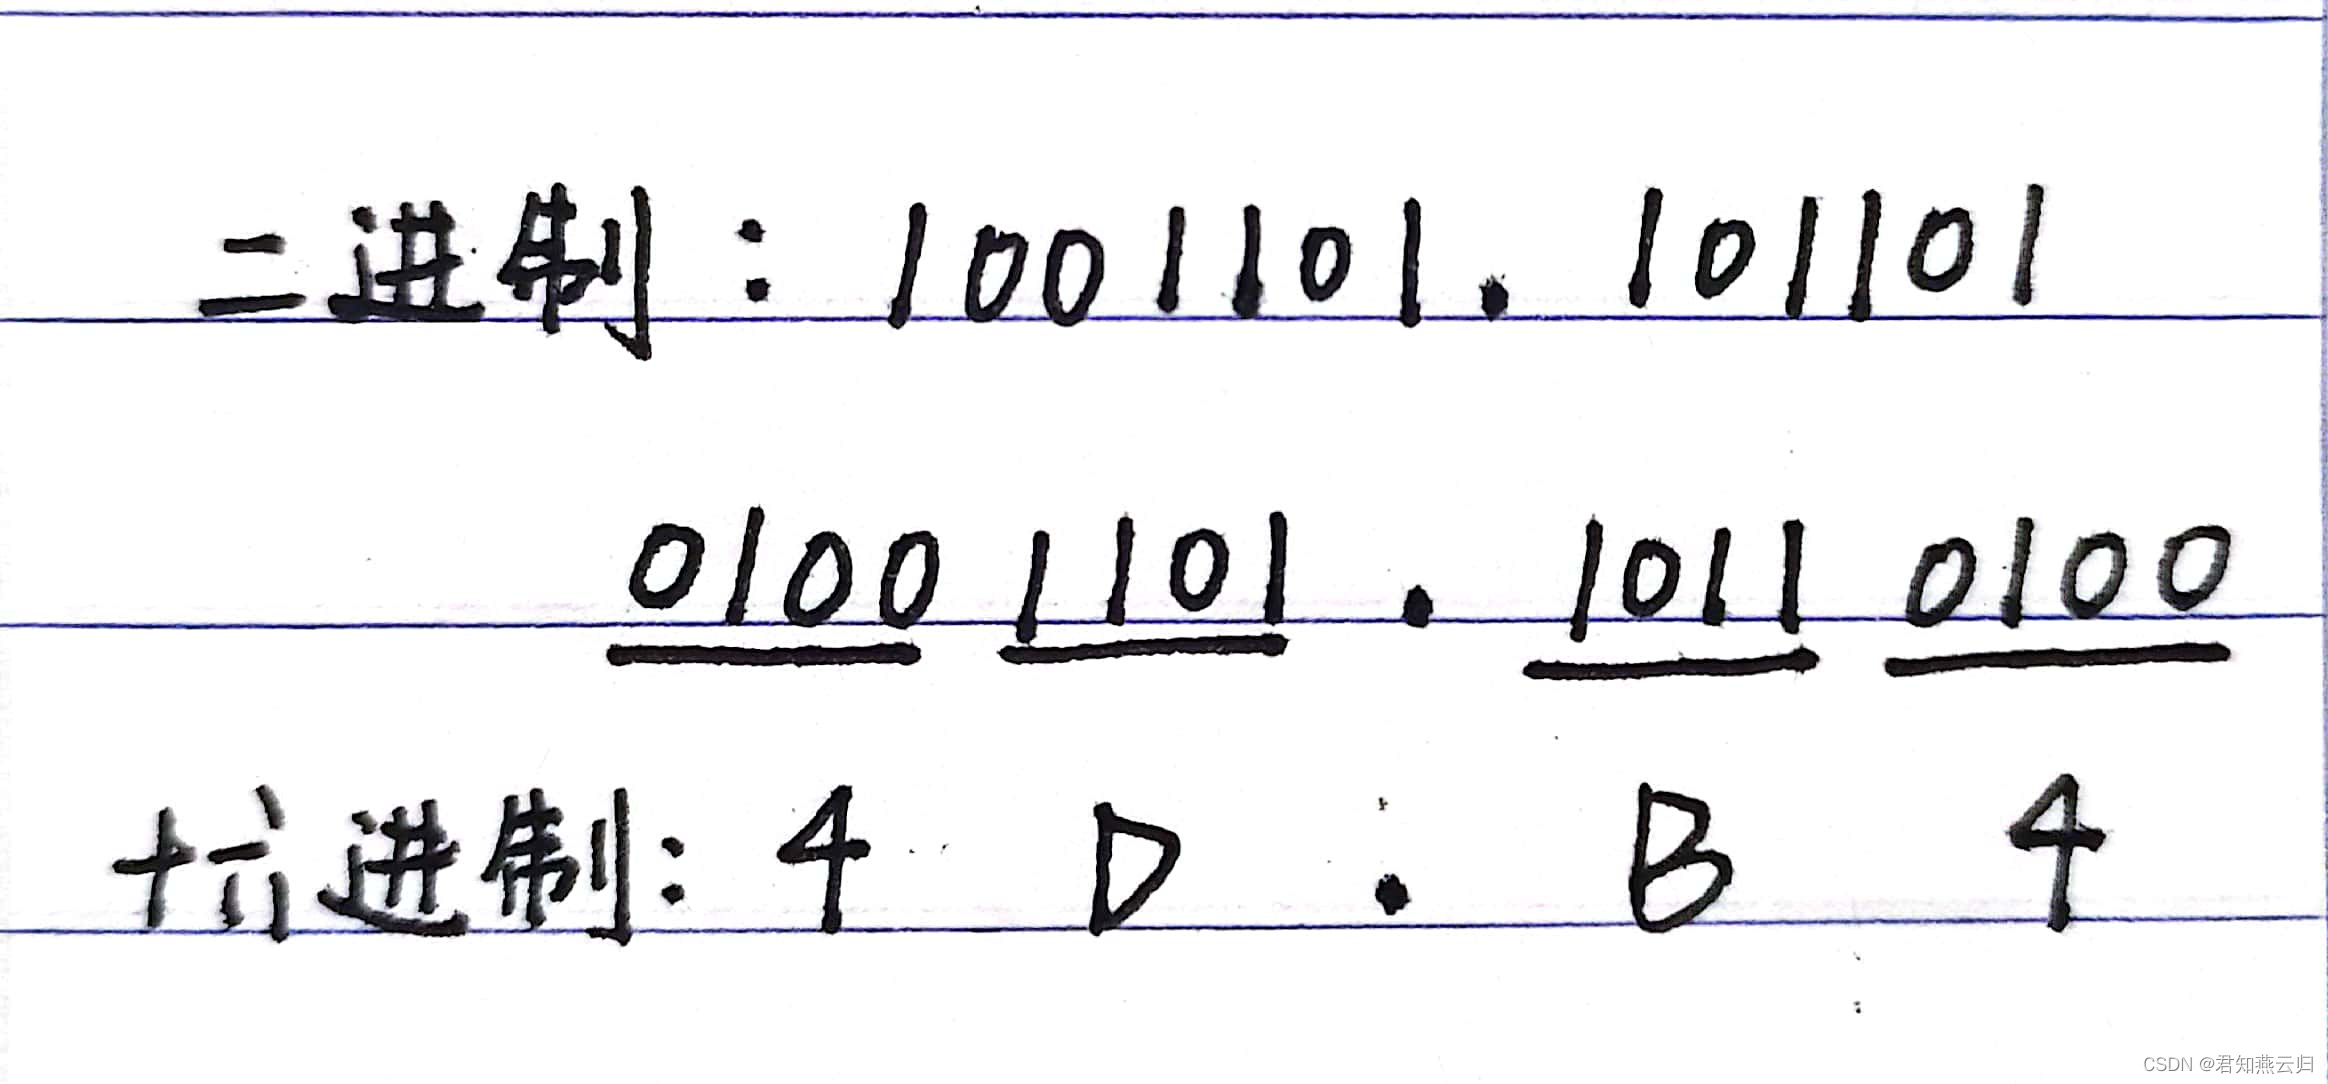 二进制：1001101.101101
0100 1101 . 1011 0100
十六进制：4 D . B 4
CSDN @君知燕云归